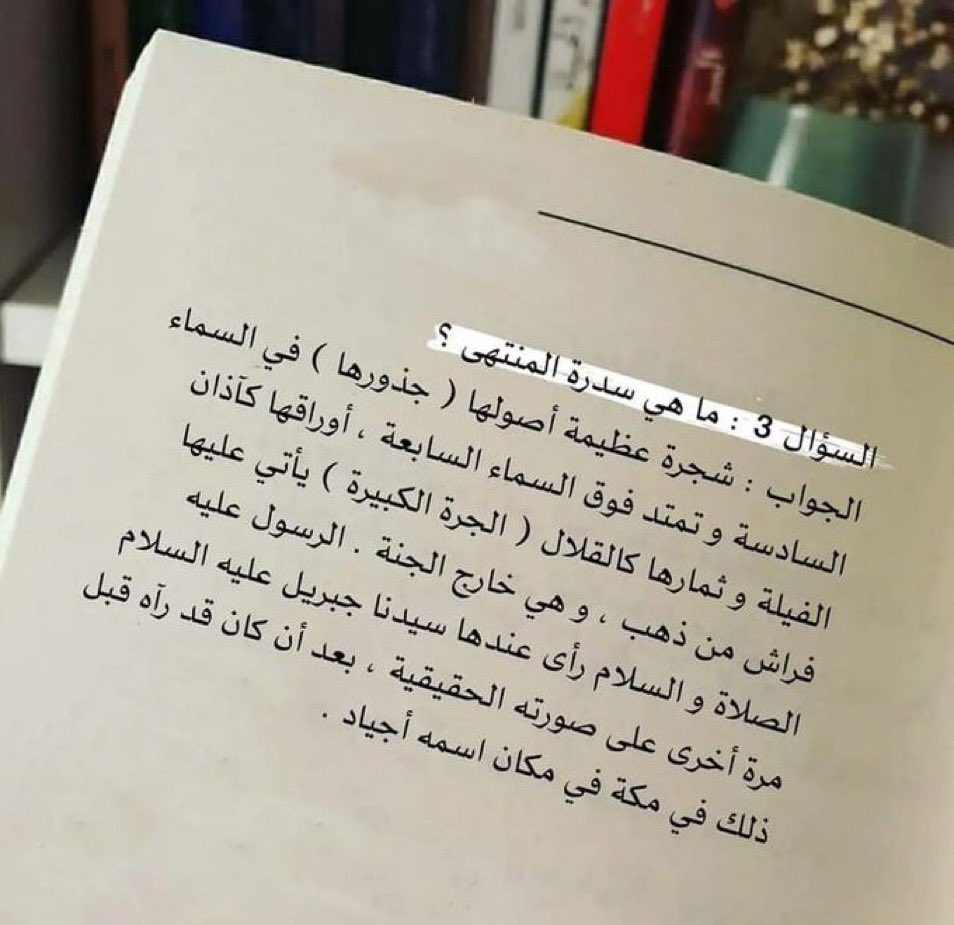 السؤال 3 : ما هي سدرة المنتهى ؟
الجواب : شجرة عظيمة أصولها ( جذورها ) في السماء
السادسة و تمتد فوق السماء السابعة ، أوراقها كآذان
الفيلة و ثمارها كالقلال ( الجرة الكبيرة ) يأتي عليها
فراش من ذهب ، و هي خارج الجنة . الرسول عليه
الصلاة و السلام رأى عندها سيدنا جبريل عليه السلام
مرة أخرى على صورته الحقيقية ، بعد أن كان قد رآه قبل
ذلك في مكة في مكان اسمه أجياد .